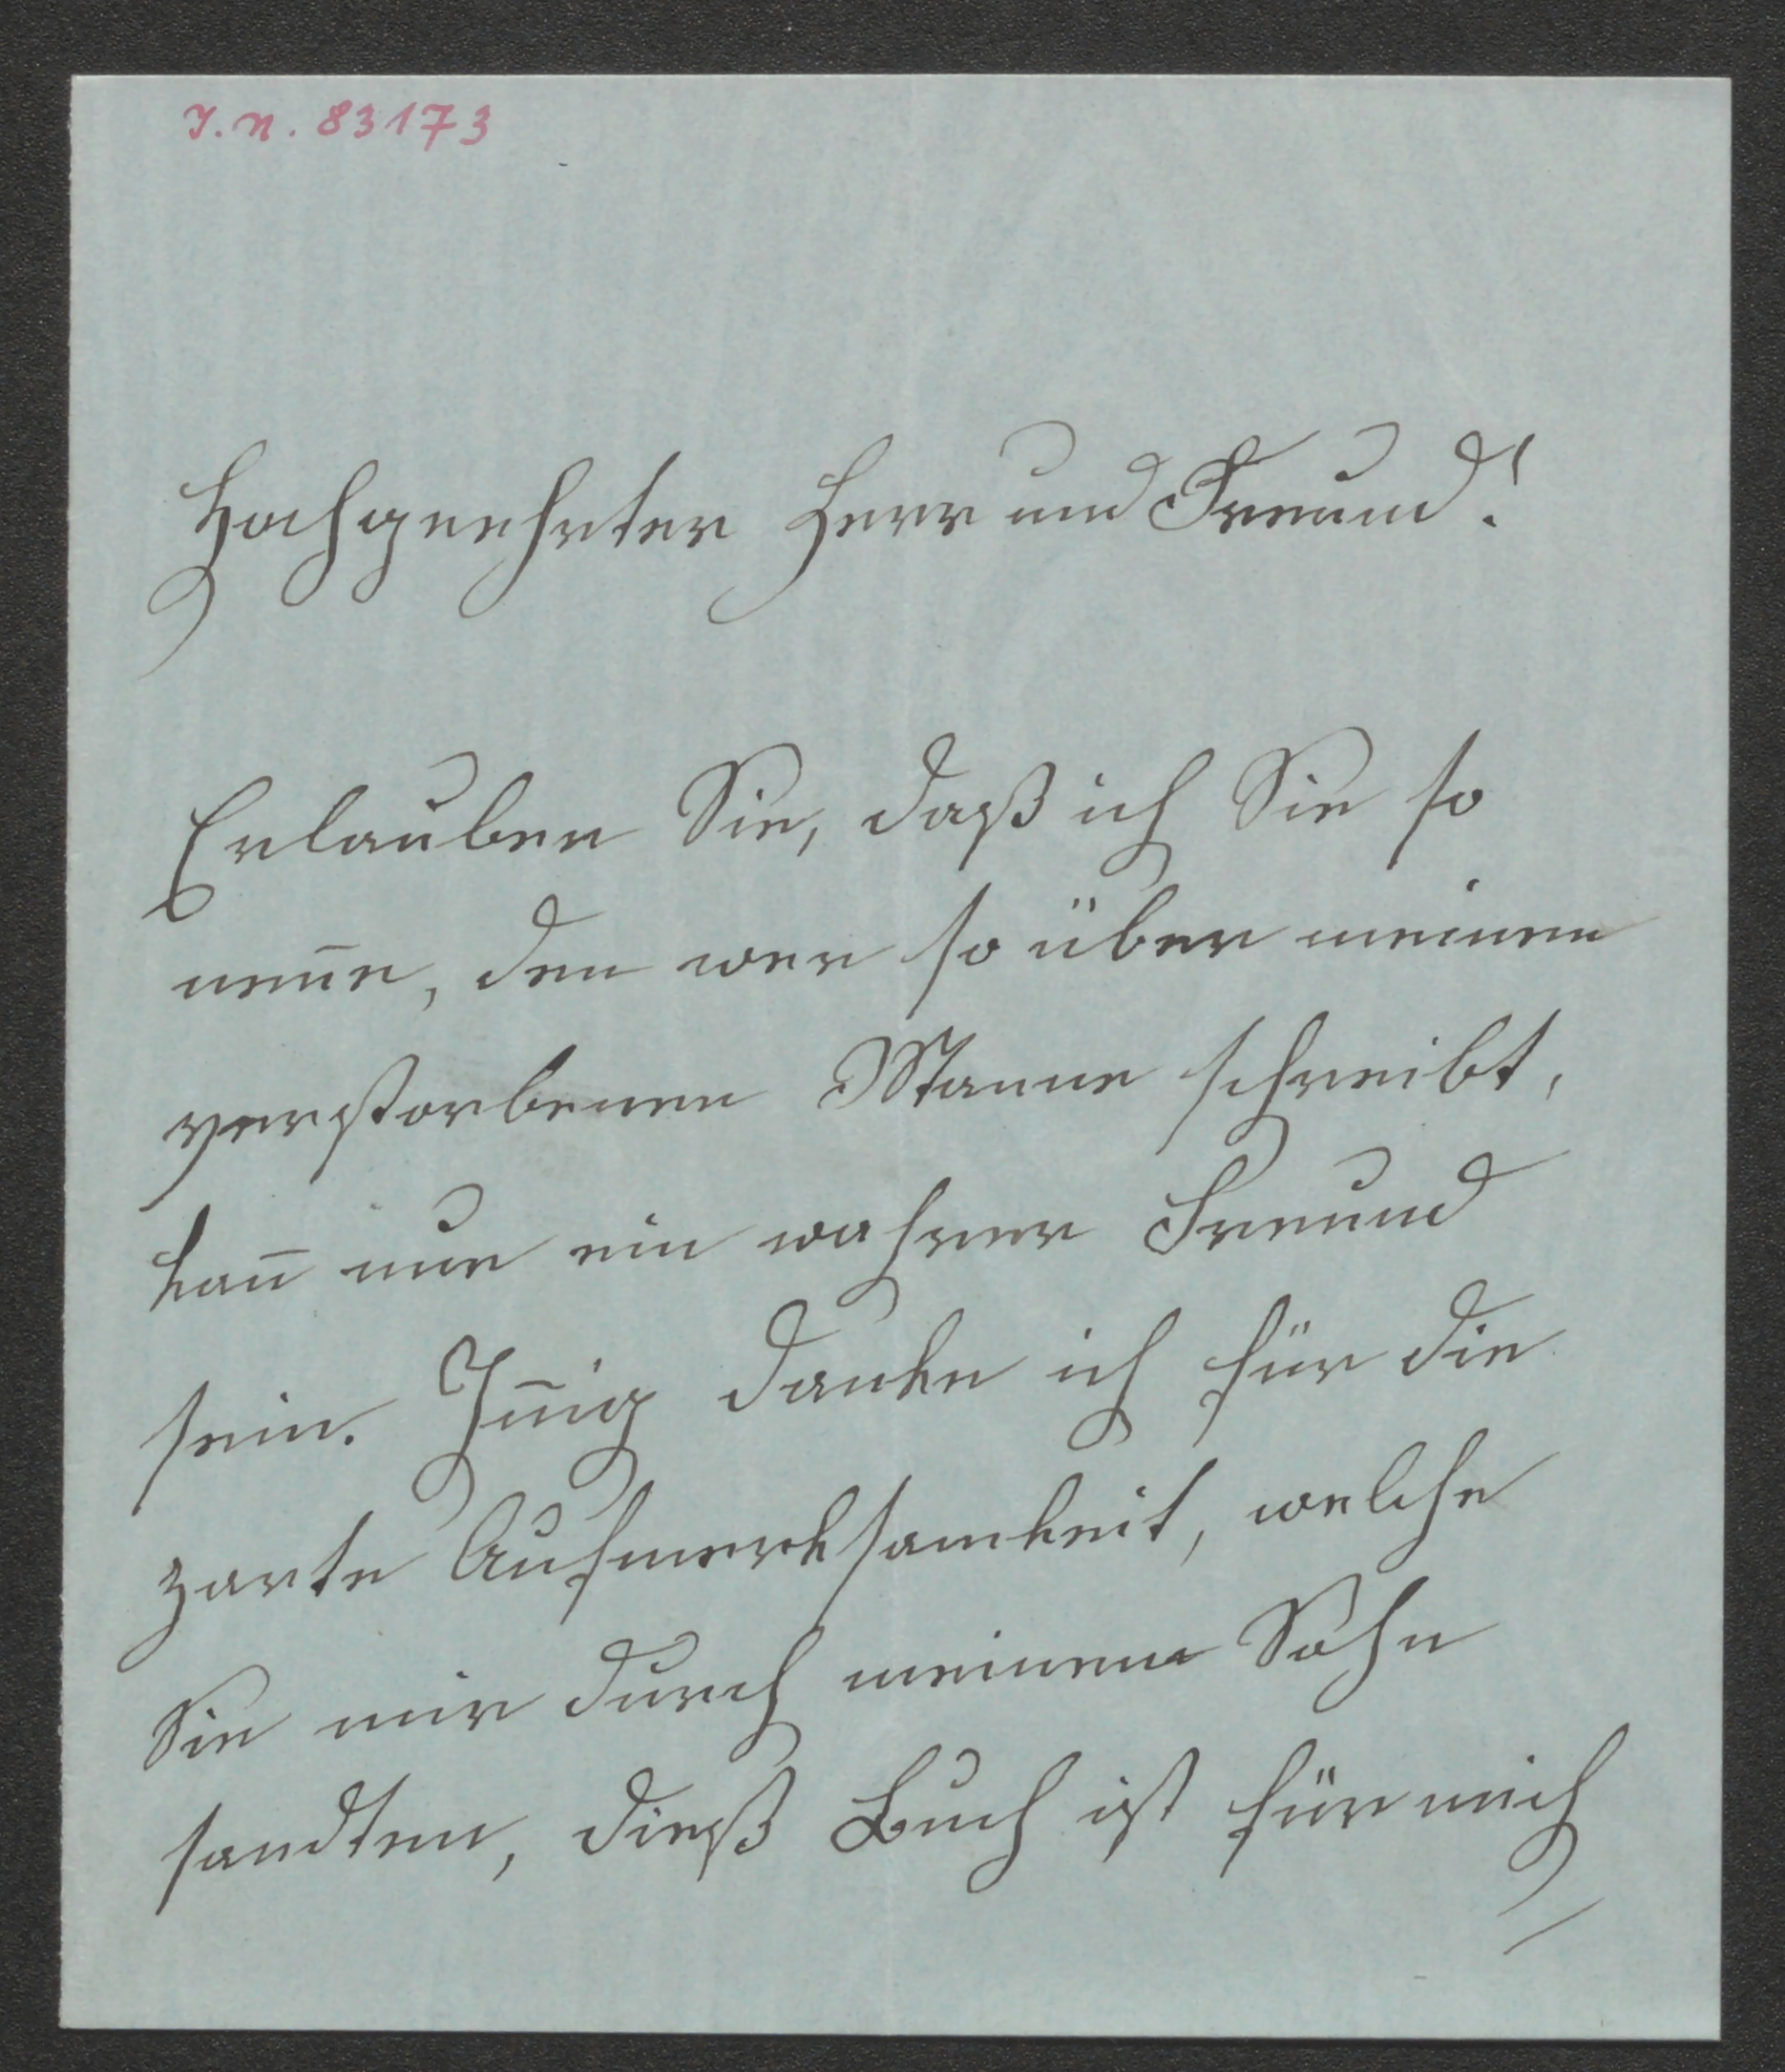 I.N. 83173
Hochgeehrter Herr und Freund!
Erlauben Sie, daß ich Sie so
nen̄e, den wer so über meinen
verstorbenen Manne schreibt,
kan̄ nur ein wahrer Freund
sein. In̄ig danke ich für die
zarte Aufmerksamkeit, welche
Sie mir durch meinem Sohn
sandten, dieß Buch ist für mich